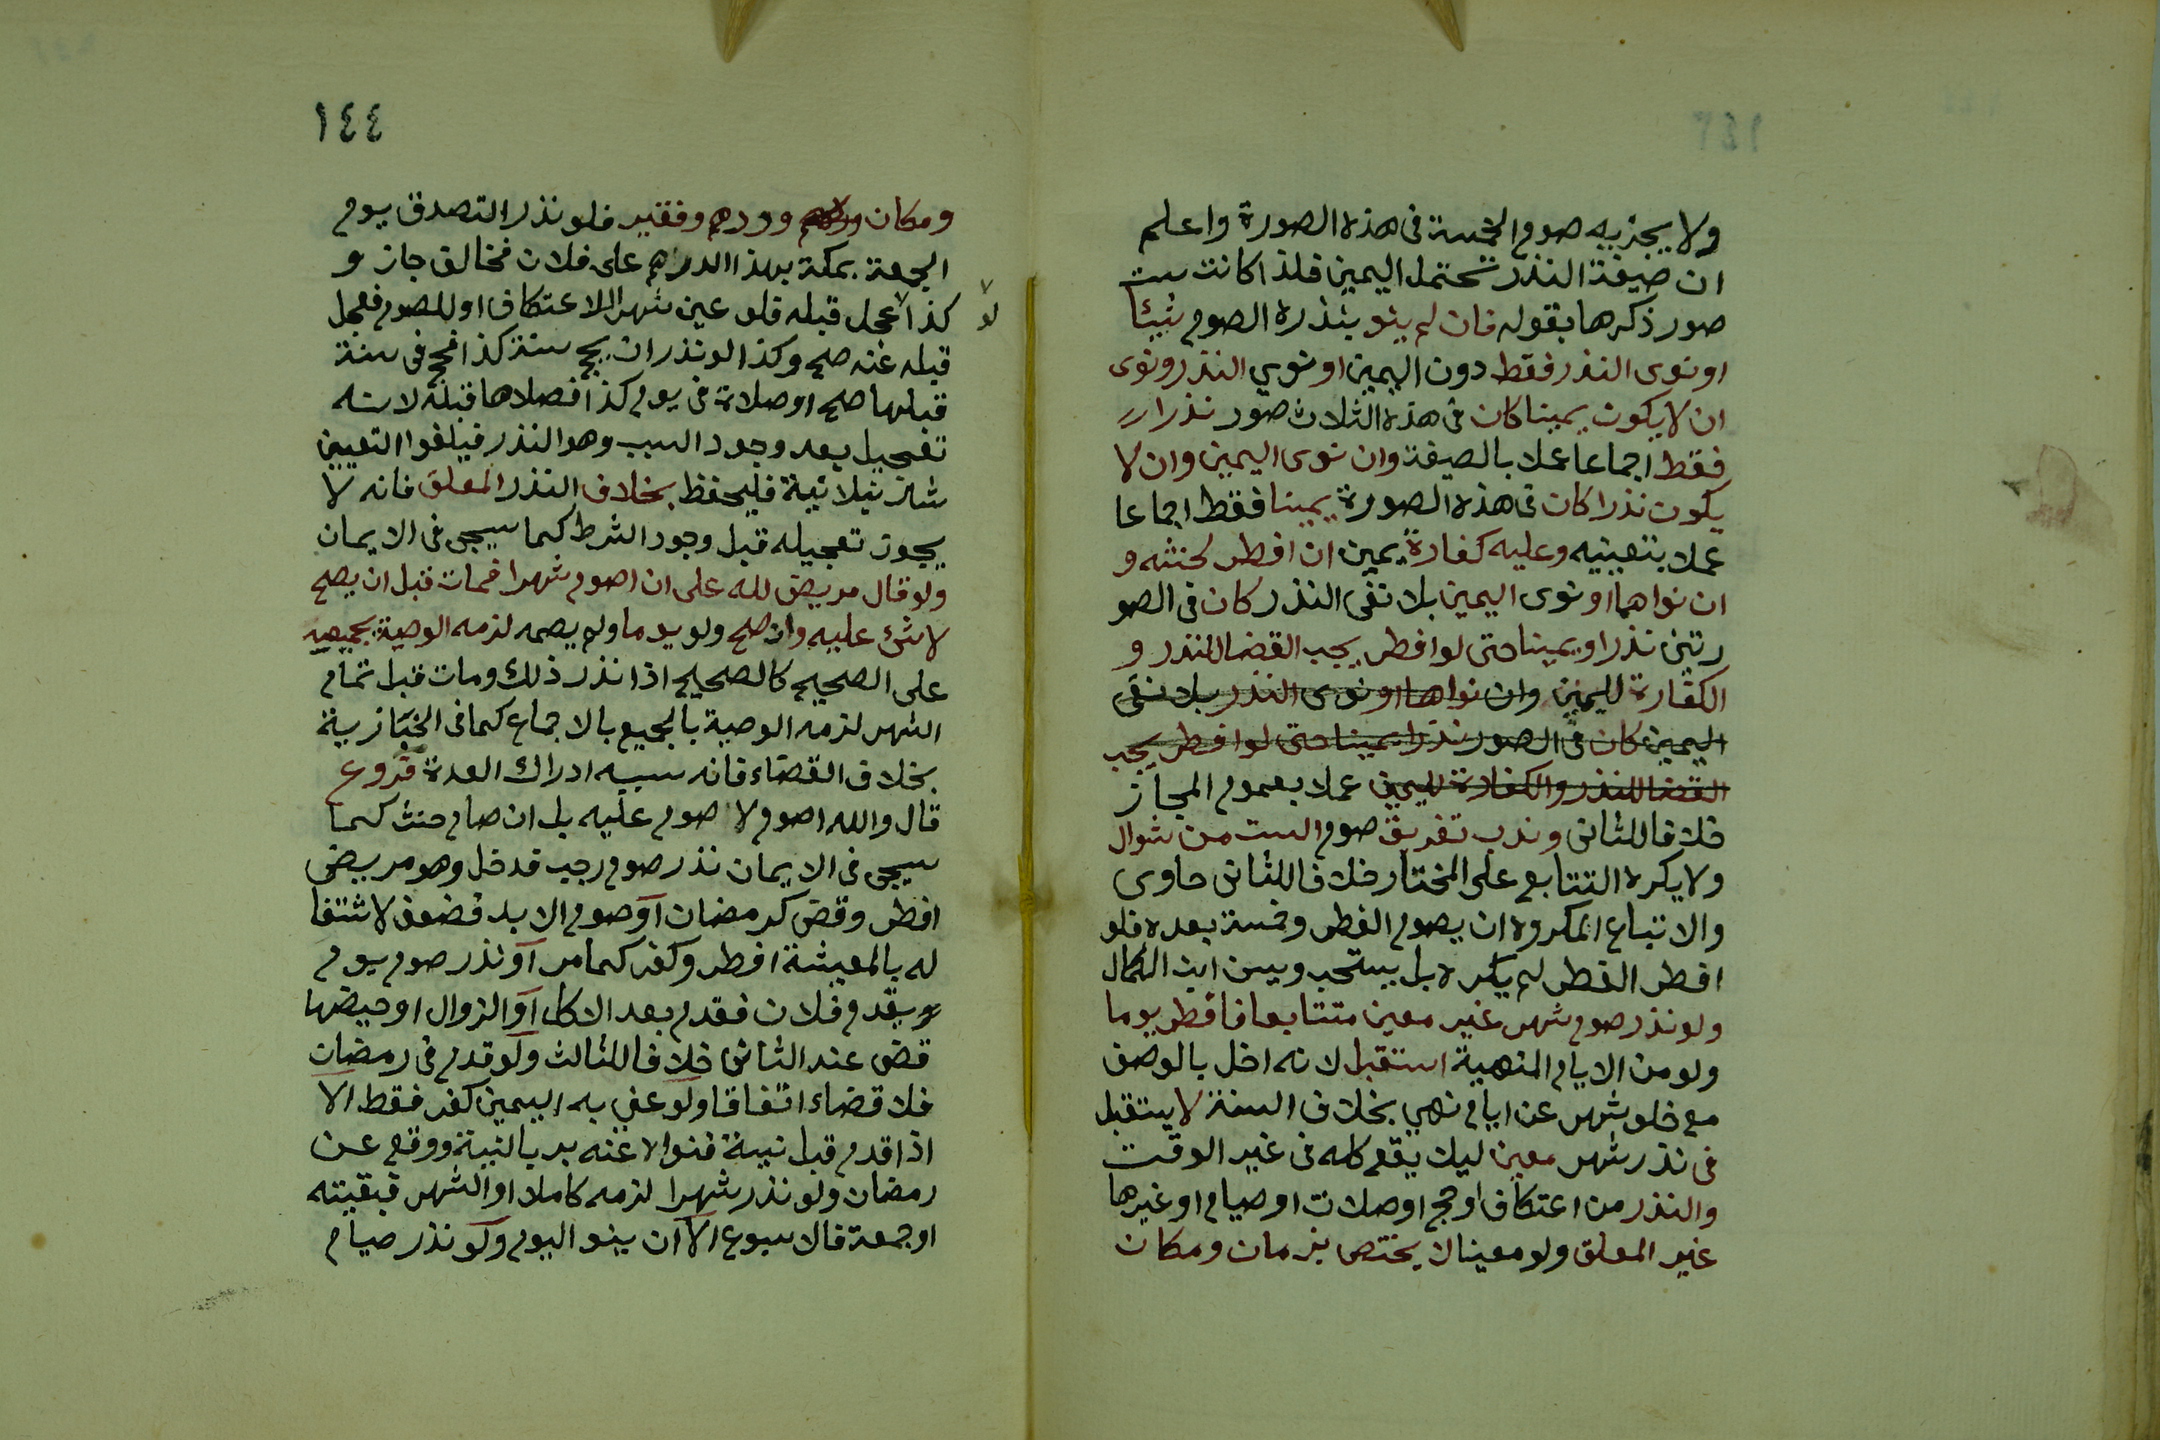 ولا يجزيه صوم الخمسة فى هذه الصورة واعلم
ان صيغة النذر تحتمل اليمين فلذا كانت ست
صور ذكرها بقوله فان لم ينو بنذره الصوم شيئا
او نوى النذر فقط دون اليمين او نوي النذر ونوى
ان لا يكون يمينا كان فى هذه الثلاث صور نذرا
فقط اجماعا عملا بالصيغة وان نوى اليمين وان لا
يكون نذرا كان فى هذه الصورة يمينا فقط اجماعا
عملا بتعيينه وعليه كفارة يمين ان افطر لحنثه و
ان نواهما او نوى اليمين بلا نفى النذر كان فى الصو
رتين نذرا ويمينا حتى لو افطر يجب القضا للنذر و
الكفارة لليمين وان نواها او نوى النذر بلا نفى
اليمين كان فى الصور نذرا يمينا حتى لو افطر يجب
القضا للنذر والكفارة لليمين عملا بعموم المجاز
خلافا للثانى وندب تفريق صوم الست من شوال
ولا يكره التتابع على المختار خلافا للثانى حاوى
والاتباع المكروه ان يصوم الفطر وخمسة بعده فلو
افطر الفطر لم يكره بل يستحب ويسن ابن الكمال
ولو نذر صوم شهر غير معين متتابعا فافطر يوما
ولو من الايام المنهية استقبل لانه اخل بالوصف
مع خلو شهر عن ايام نهي بخلاف السنة لا يستقبل
فى نذر شهر معين ليلا يقع كله فى غير الوقت
والنذر من اعتكاف او حج او صلات او صيام او غيرها
غير المعلق ولو معينا لا يختص بزمان ومكان
١٤٤
ومكان ودرهم وفقير فلو نذر التصدق يوم
الجمعة بمكة بهذا الدراهم على فلان فخالف جاز و
كذا لو عجل قبله فلو عين شهرا للاعتكاف او للصوم فعجل
قبله عنه صح وكذا لو نذر ان يحج سنة كذا فحج فى سنة
قبلها صح او صلاة فى يوم كذا فصلاها قبله لانه
تعجيل بعد وجود السبب وهو النذر فيلغوا التعيين
شرنبلانية فليحفظ بخلاف النذر المعلق فانه لا
يجوز تعجيله قبل وجود الشرط كما سيجى فى الايمان
ولو قال مريض لله على ان اصوم شهرا فمات قبل ان يصح
لا شئ عليه وان صح ولو يوما ولم يصمه لزمه الوصية بجميعه
على الصحيح كالصحيح اذا نذر ذلك ومات قبل تمام
الشهر لزمه الوصية بالجميع بالاجماع كما فى الخبازية
بخلاف القضاء فانه سببه ادراك العدة فروع
قال والله اصوم لا صوم عليه بل ان صام حنث كما
سيجى فى الايمان نذر صوم رجب فدخل وهو مريض
افطر وقضى كرمضان او صوم الابد فضعف لاشتغا
له بالمعيشة افطر وكفر كما مر او نذر صوم يوم
يقدم فلان فقدم بعد الاكل او الزوال او حيضها
قضى عند الثانى خلافا للثالث ولو قدم فى رمضان
فلا قضاء اتفاقا ولو عنى به اليمين كفر فقط الا
اذا قدم قبل نيته فنواه عنه بر بالنية ووقع عن
رمضان ولو نذر شهرا لزمه كاملا او الشهر فبقيته
او جمعة فالاسبوع الا ان ينو اليوم ولو نذر صيام